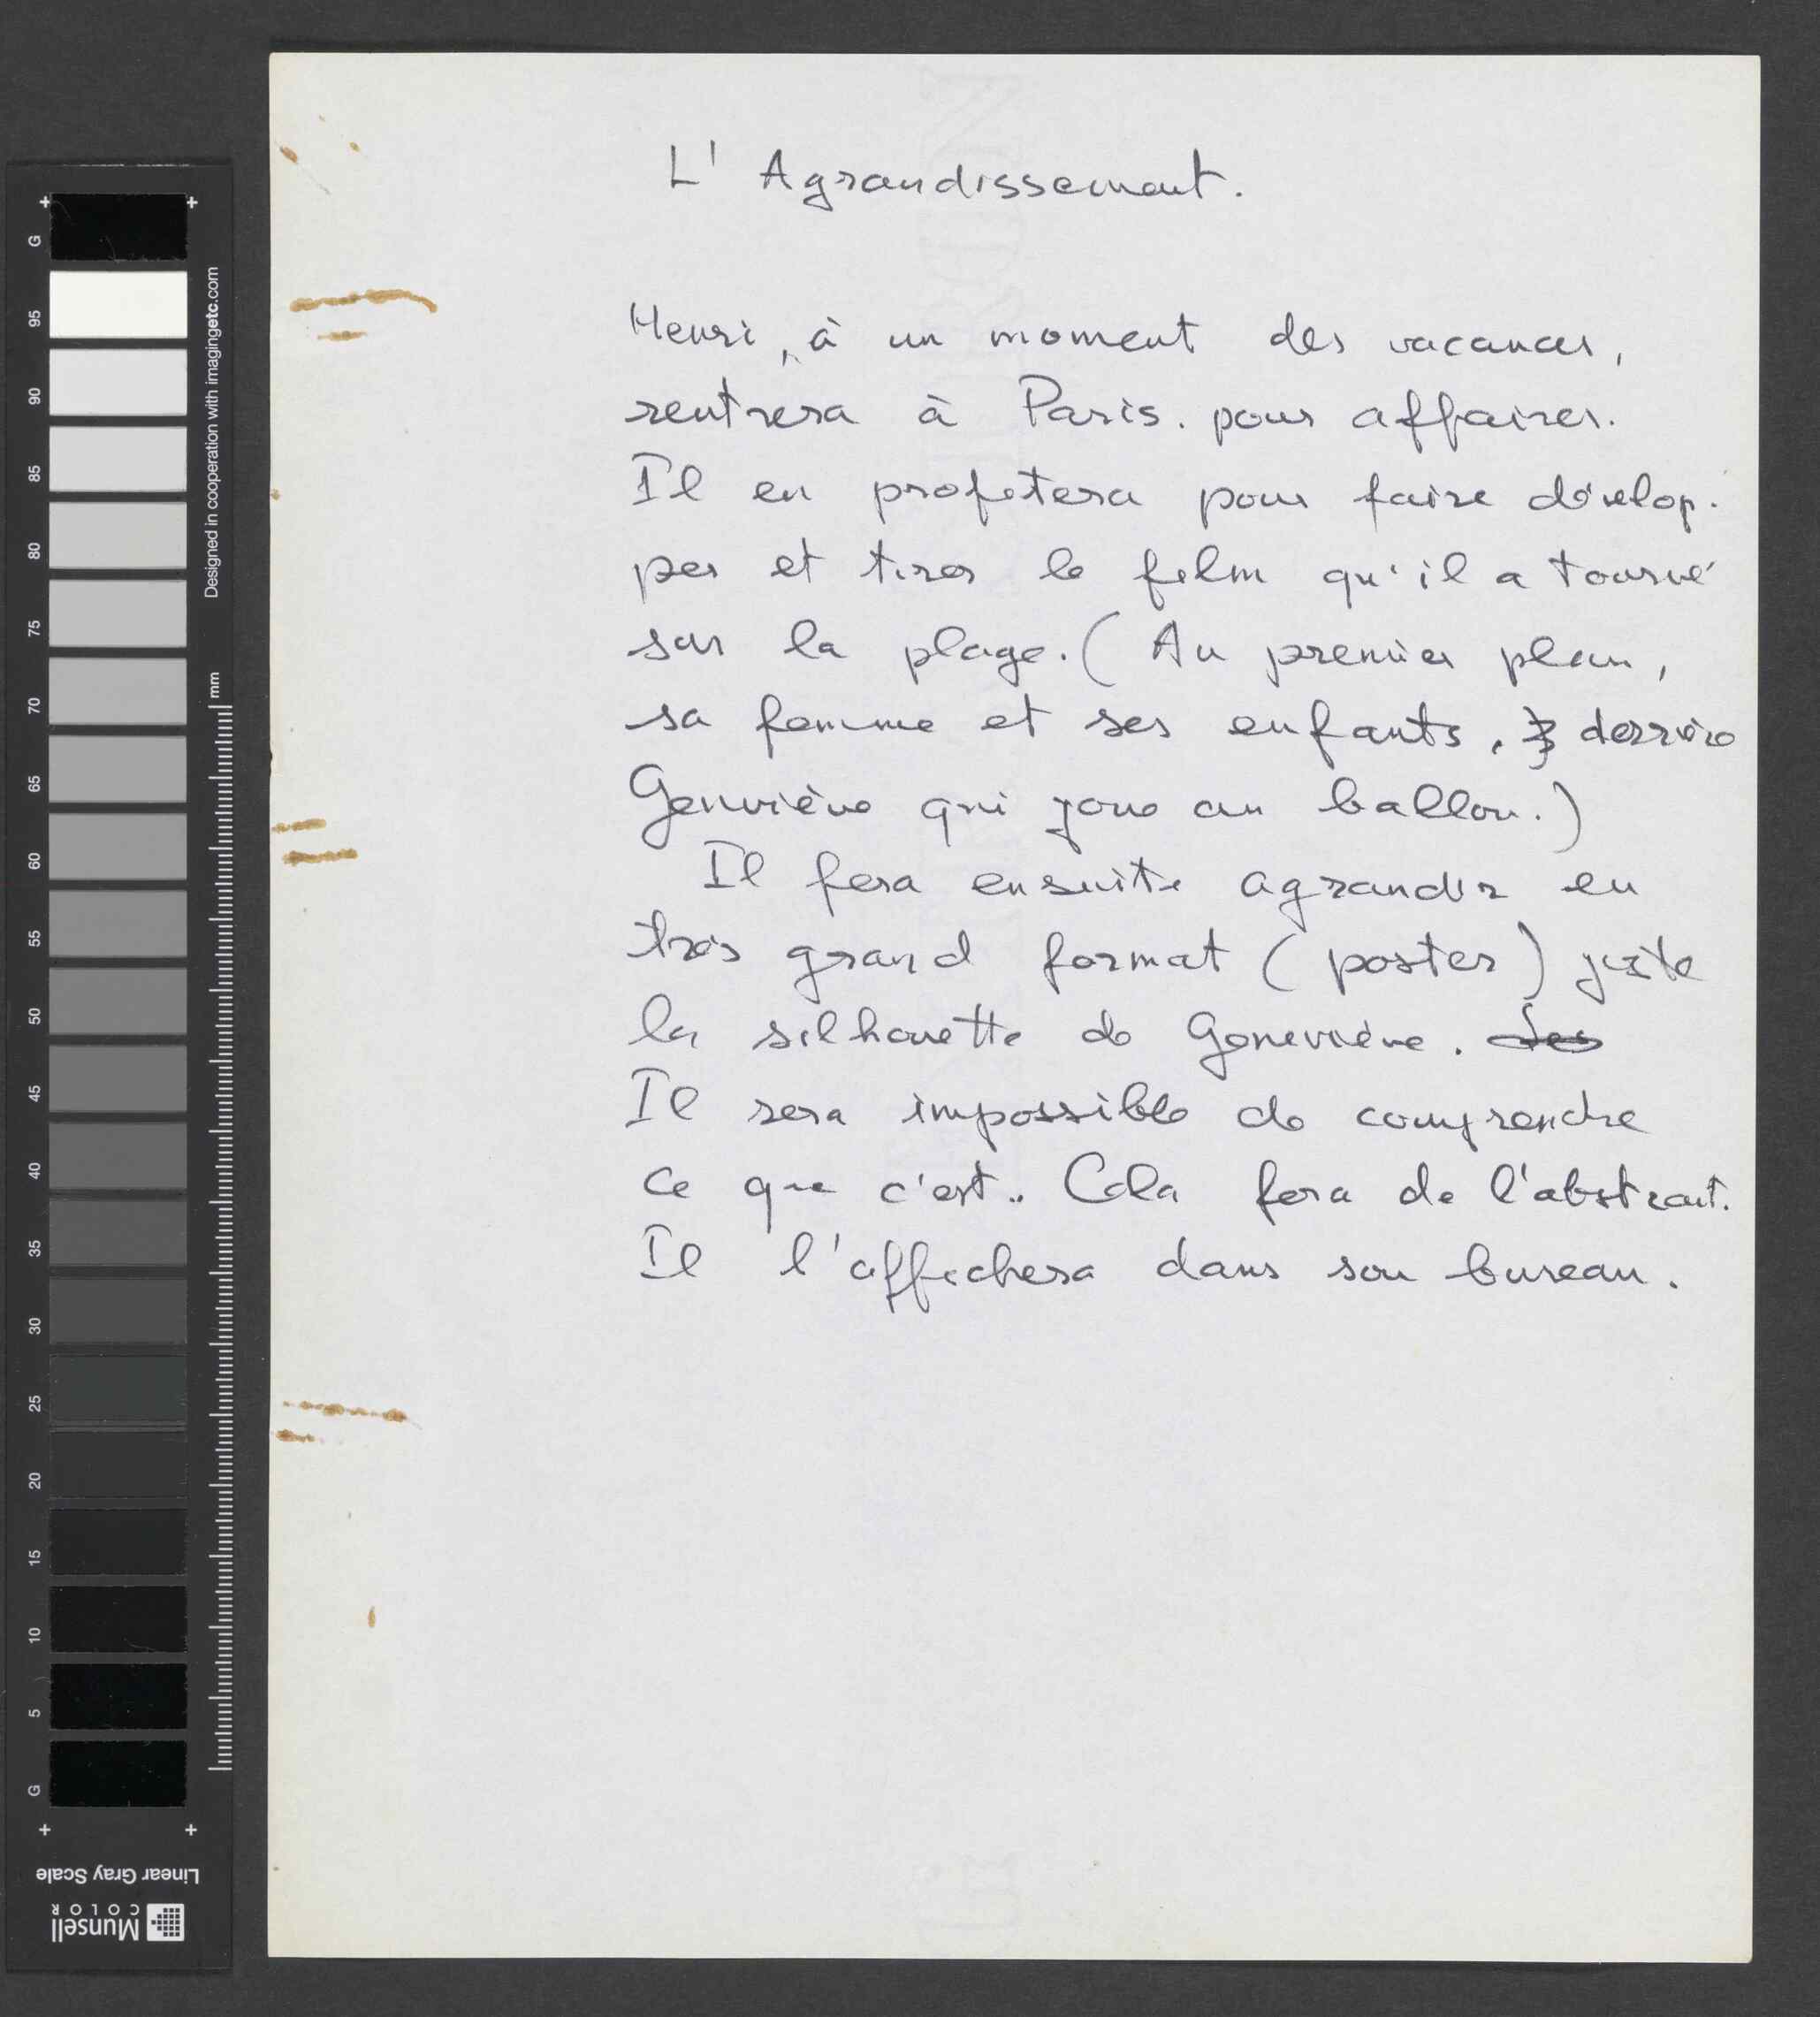 L' Agrandissement.
Henri, à un moment des vacances,
rentrera à Paris. pour affaires.
Il en profitera pour faire dévelop-
per et tirer le film qu'il a tourné
sur la plage. (Au premier plan,
sa femme et ses enfants, derrière
Geneviève qui joue au ballon.)
Il fera ensuite agrandir en
très grand format (poster) juste
la silhouette de Geneviève. Les
Il sera impossible de comprendre
ce que c'est.. Cela fera de l'abstrait.
Il l'affichera dans son bureau.
G
95
90
85
80
75
70
65
60
55
50
45
40
35
30
25
20
15
10
5
G
Designed in cooperation with imagingetc.com
mm
Linear Gray Scale
Munsell
COLOR